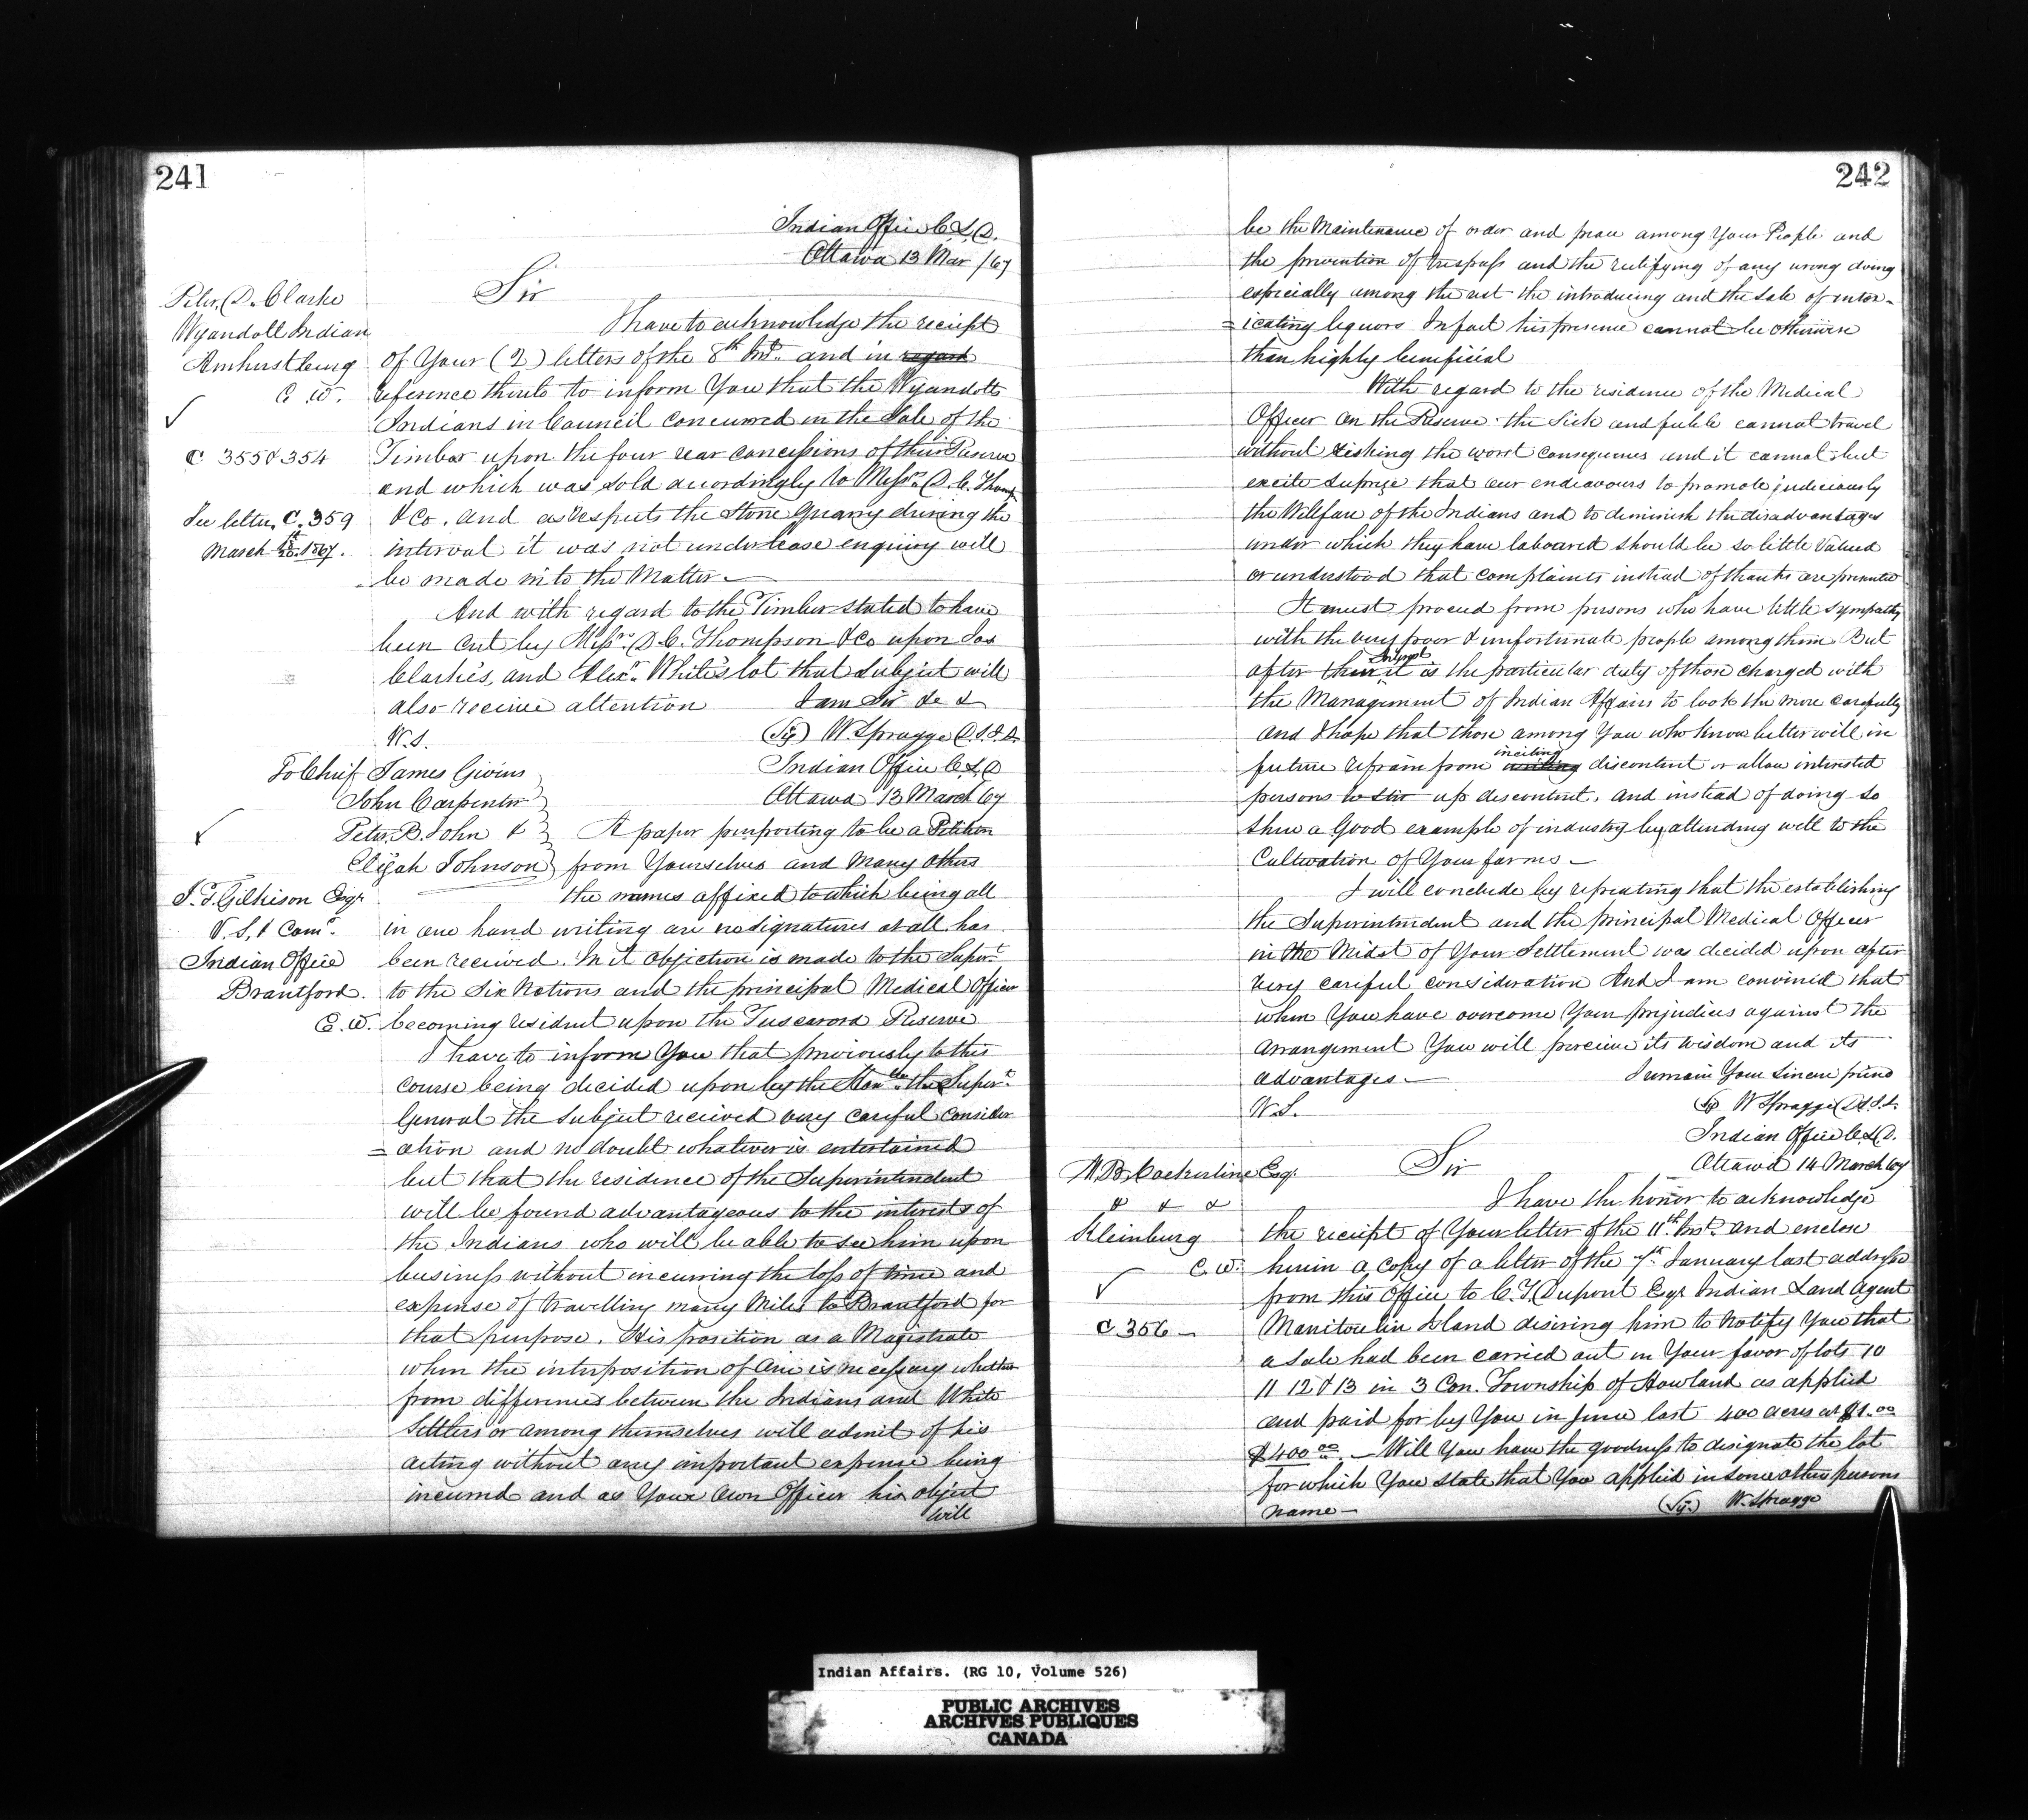 241
Indian Office C.L.D.
Ottawa 13 Mar /67
Sir
Peter D. Clarke
Wyandott Indian
Amhurstburg
C. W.
✓
C 355 & 354
See letter C. 359
March 1867.
I have to acknowledge the reciept
of Your (2) letters of the 8th Inst. and in regard
reference thereto to inform You that the Wyandotts
Indians in Council concurred in the Sale of the
Timber upon the four rear concessions of their Reserve
and which was sold accordingly to Messrs D. C. Thomp
& Co. and as respects the Stone Quarry during the
interval it was not under lease enquiry will
be made into the Matter —
And with regard to the Timber stated to have
been cut by Messrs D. C. Thompson & Co upon Jas
Clarke's, and Alexr. White's lot that subject will
also receive attention I am Sir &c &
W. S. (Sg) W. Spragge D.S.I.A.
Indian Office C.L.D
Ottawa 13 March 67
To Chief James Givins
John Carpenter
Peter B. John &
Elijah Johnson
✓
J. T. Gilkison Esqr
V. S. & Comr.
Indian Office
Brantford.
C. W.
A paper purporting to be a Petition
from Yourselves and Many others
the names affixed to which being all
in one hand writing are no signatures at all has
been received. In it objection is made to the Supert
to the Six Nations and the principal Medical Officer
becoming resident upon the Tuscarora Reserve
I have to inform You that previously to this
course being decided upon by the Honble. the Supert.
General the subject recieved very careful consider
= ation and no doubt whatever is entertained
but that the residence of the Superintendent
will be found advantageous to the interests of
the Indians who will be able to see him upon
business without incurring the loss of time and
expense of travelling many Miles to Brantford for
that purpose. His position as a Magistrate
when the interposition of one is necessary whether
from differences between the Indians and White
Settlers or among themselves will admit of his
acting without any important expense being
incurred and as Your Own Officer his object
will
242
be the Maintenance of order and peace among Your People and
the prevention of trespass and the rectifying of any wrong doing
especially among the rest the introducing and the Sale of intox-
= icating liquors In fact his presence cannot be otherwise
than highly beneficial
With regard to the residence of the Medical
Officer on the Reserve the Sick and feeble cannot travel
without risking the worst consequences and it cannot but
excite suprize that our endeavours to promote judiciously
the Wellfare of the Indians and to diminish the disadvantages
under which they have laboured should be so little valued
or understood that complaints instead of thanks are presented
It must proceed from persons who have little sympathy
with the very poor & unfortunate people among them But
after their it is the particular duty of those charged with
the Management of Indian Affairs to look the more carefully
and I hope that those among You who know better will in
inciting
future refrain from writing discontent or allow interested
persons to stir up discontent. and instead of doing so
shew a good example of industry by attending well to the
Cultivation of Your farms —
I will conclude by repeating that the establishing
the Superintendent and the principal Medical Officer
in the Midst of Your Settlement was decided upon after
very careful consideration And I am convinced that
when You have overcome Your prejudices against the
arrangement You will perceive its wisdom and its
advantages — I remain Your Sincere friend
W. S. (Sg) W Spragge D.S.I.A.
Indian Office C.L.D.
Ottawa 14 March 67
A. B. Cockerline Esqr. Sir
& & &
Kleinburg
C. W.
✓
C 356 —
I have the honor to acknowledge
the reciept of Your letter of the 11th Inst. and enclose
herein a copy of a letter of the 7th January last addressed
from this Office to C. T. Dupont Esqr Indian Land Agent
Manitoulin Island desiring him to Notify You that
a Sale had been carried out in Your favor of lots 10
11 12 & 13 in 3 Con. Township of Howland as applied
and paid for by You in June last 400 acres at $1.00
$400.00. — Will You have the goodness to designate the lot
for which You state that You applied in some other persons
name — (Sg.) W. Spragge
Indian Affairs. (RG 10, Volume 526)
PUBLIC ARCHIVES
ARCHIVES PUBLIQUES
CANADA